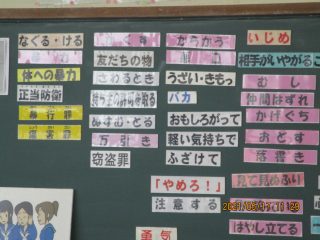 なぐる・ける
体への暴力
正当防衛
暴行罪
傷害罪
友だちの物
さわるとき
ぬすむ・とる
万引き
窃盗罪
からかう
うざい・きもっ
バカ
おもしろがって
軽い気持ちで
ふざけて
「やめろ！」
注意する
勇気
いじめ
相手がいやがるこ
むし
仲間はずれ
かげぐち
おどす
落書き
見て見ぬふり
はやし立てる